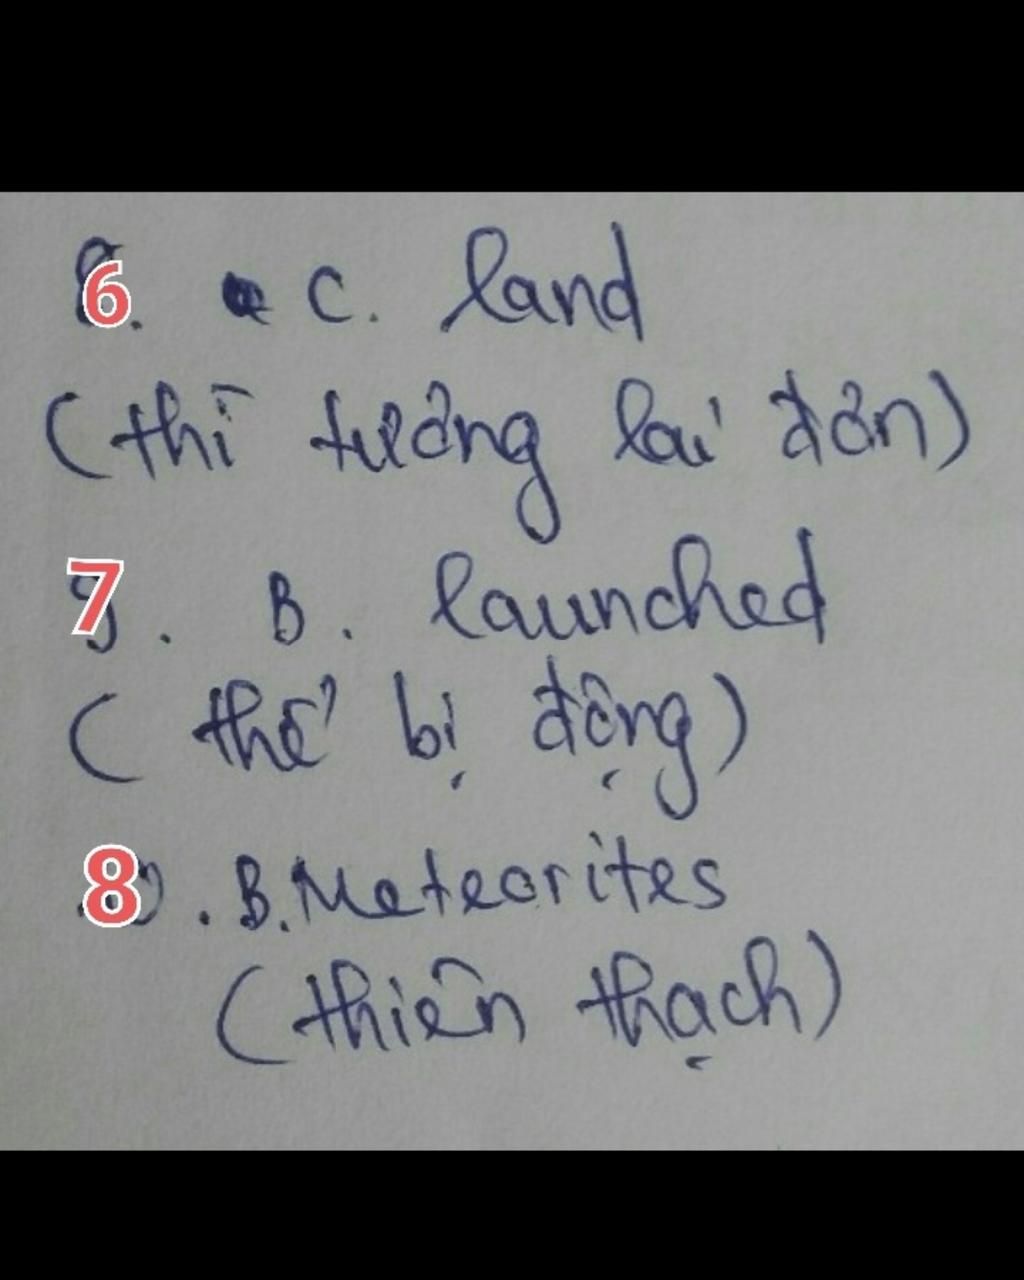 6. C. land
(thì tương lai đơn)
7. B. launched
(thể bị động)
8. B. Meteorites
(thiên thạch)